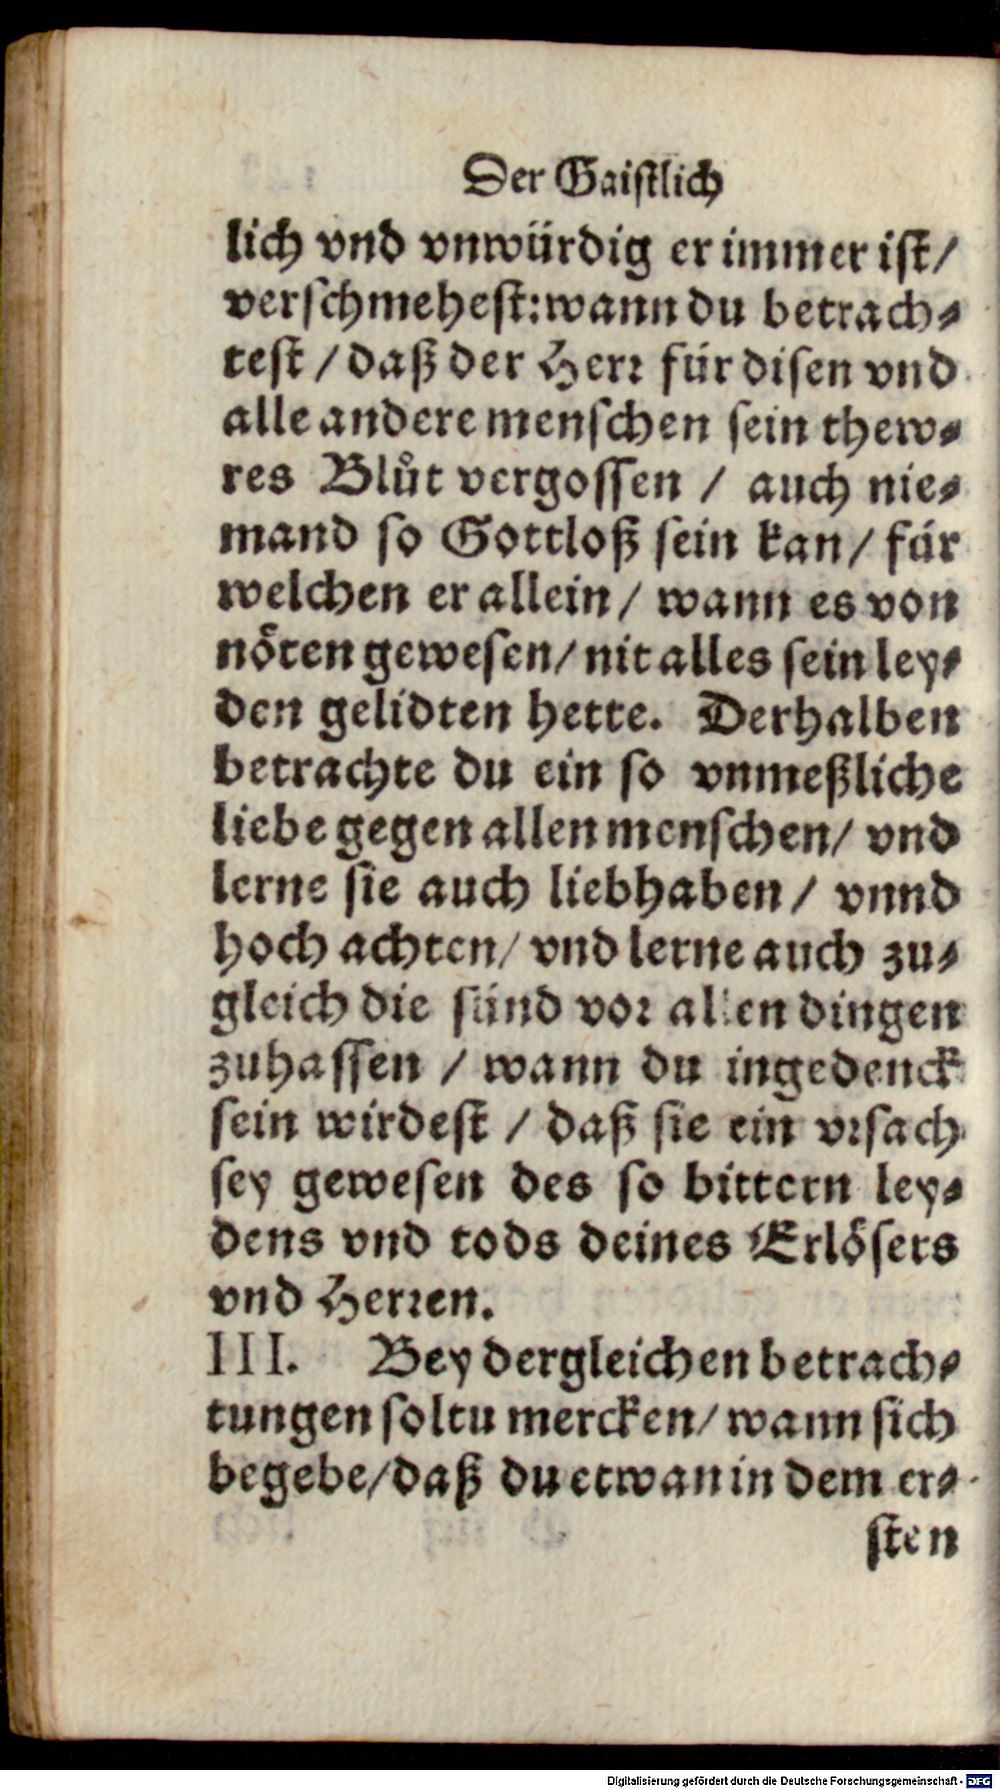 Der Gaistlich
lich vnd vnwürdig er immer ist/
verschmehest: wann du betrach⸗
test / daß der Herr für disen vnd
alle andere menschen sein thew⸗
res Blůt vergossen / auch nie⸗
mand so Gottloß sein kan/ für
welchen er allein/ wann es von
nöten gewesen/ nit alles sein ley⸗
den gelidten hette. Derhalben
betrachte du ein so vnmeßliche
liebe gegen allen menschen/ vnd
lerne sie auch liebhaben / vnnd
hoch achten/ vnd lerne auch zu⸗
gleich die sünd vor allen dingen
zuhassen / wann du ingedenck
sein wirdest / daß sie ein vrsach
sey gewesen des so bittern ley⸗
dens vnd tods deines Erlösers
vnd Herren.
III. Bey dergleichen betrach⸗
tungen soltu mercken/ wann sich
begebe/ daß du etwan in dem er⸗
sten
Digitalisierung gefördert durch die Deutsche Forschungsgemeinschaft - DFG